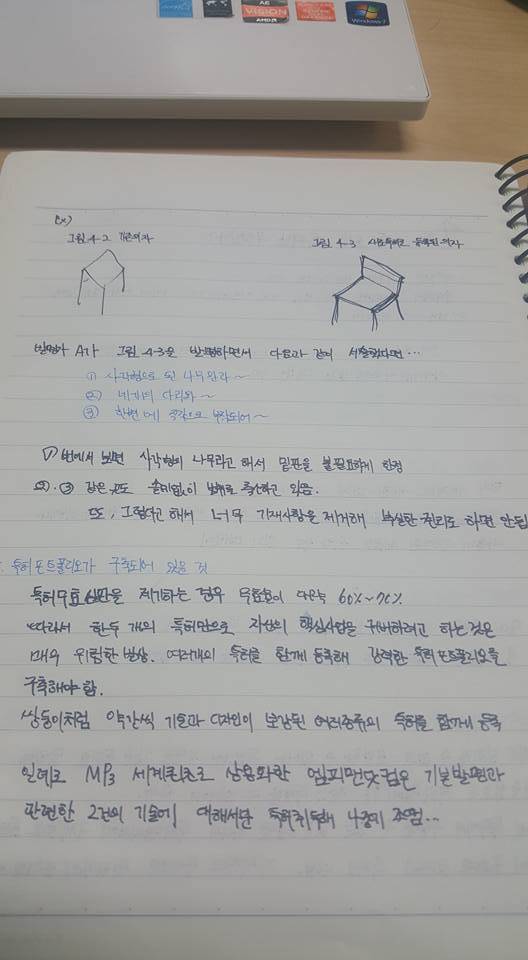 VISION
AMD
Windows 7
Ex)
그림 4-2 기존의자
그림 4-3 등록된 의자
발명가 A가 그림 4-3을 발명하면서 다음과 같이 서술했다면...
① 사각형으로 된 나무판과 ~
② 네개의 다리와 ~
③ 한변에 직각으로 부착되어 ~
①번에서 보면 사각형의 나무라고 해서 밑판을 불필요하게 한정
②, ③ 같은 것도 쓸데없이 범위를 축소하고 있음.
또, 그렇다고 해서 너무 기재사항을 제거해 부실한 권리로 하면 안됨
특허포트폴리오가 구축되어 있을 것
특허무효심판을 제기하는 경우 무효율이 60%~70%
따라서 한두 개의 특허만으로 자신의 핵심사업을 커버하려고 하는것은
매우 위험한 발상. 여러개의 특허를 함께 등록해 강력한 특허포트폴리오를
구축해야 함.
쌍둥이처럼 약간씩 기술과 디자인이 보강된 여러종류의 특허를 함께 등록
일예로 MP3 세계최초로 상용화한 엠피맨닷컴은 기본발명과
관련한 2건의 기술에 대해서만 특허취득해 나중에 ...